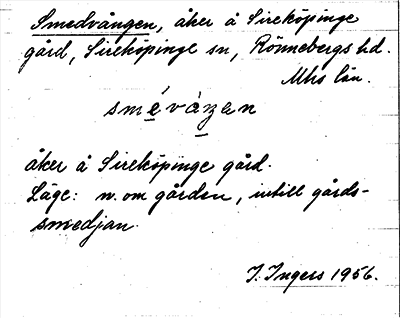 Smedvången, åker å Sireköpinge
gård, Sireköpinge sn, Rönnebergs hd.
Mhs län.
smévàzen
åker å Sireköpinge gård.
Läge: n. om gården, intill gårds-
smedjan.
I. Ingers 1956.